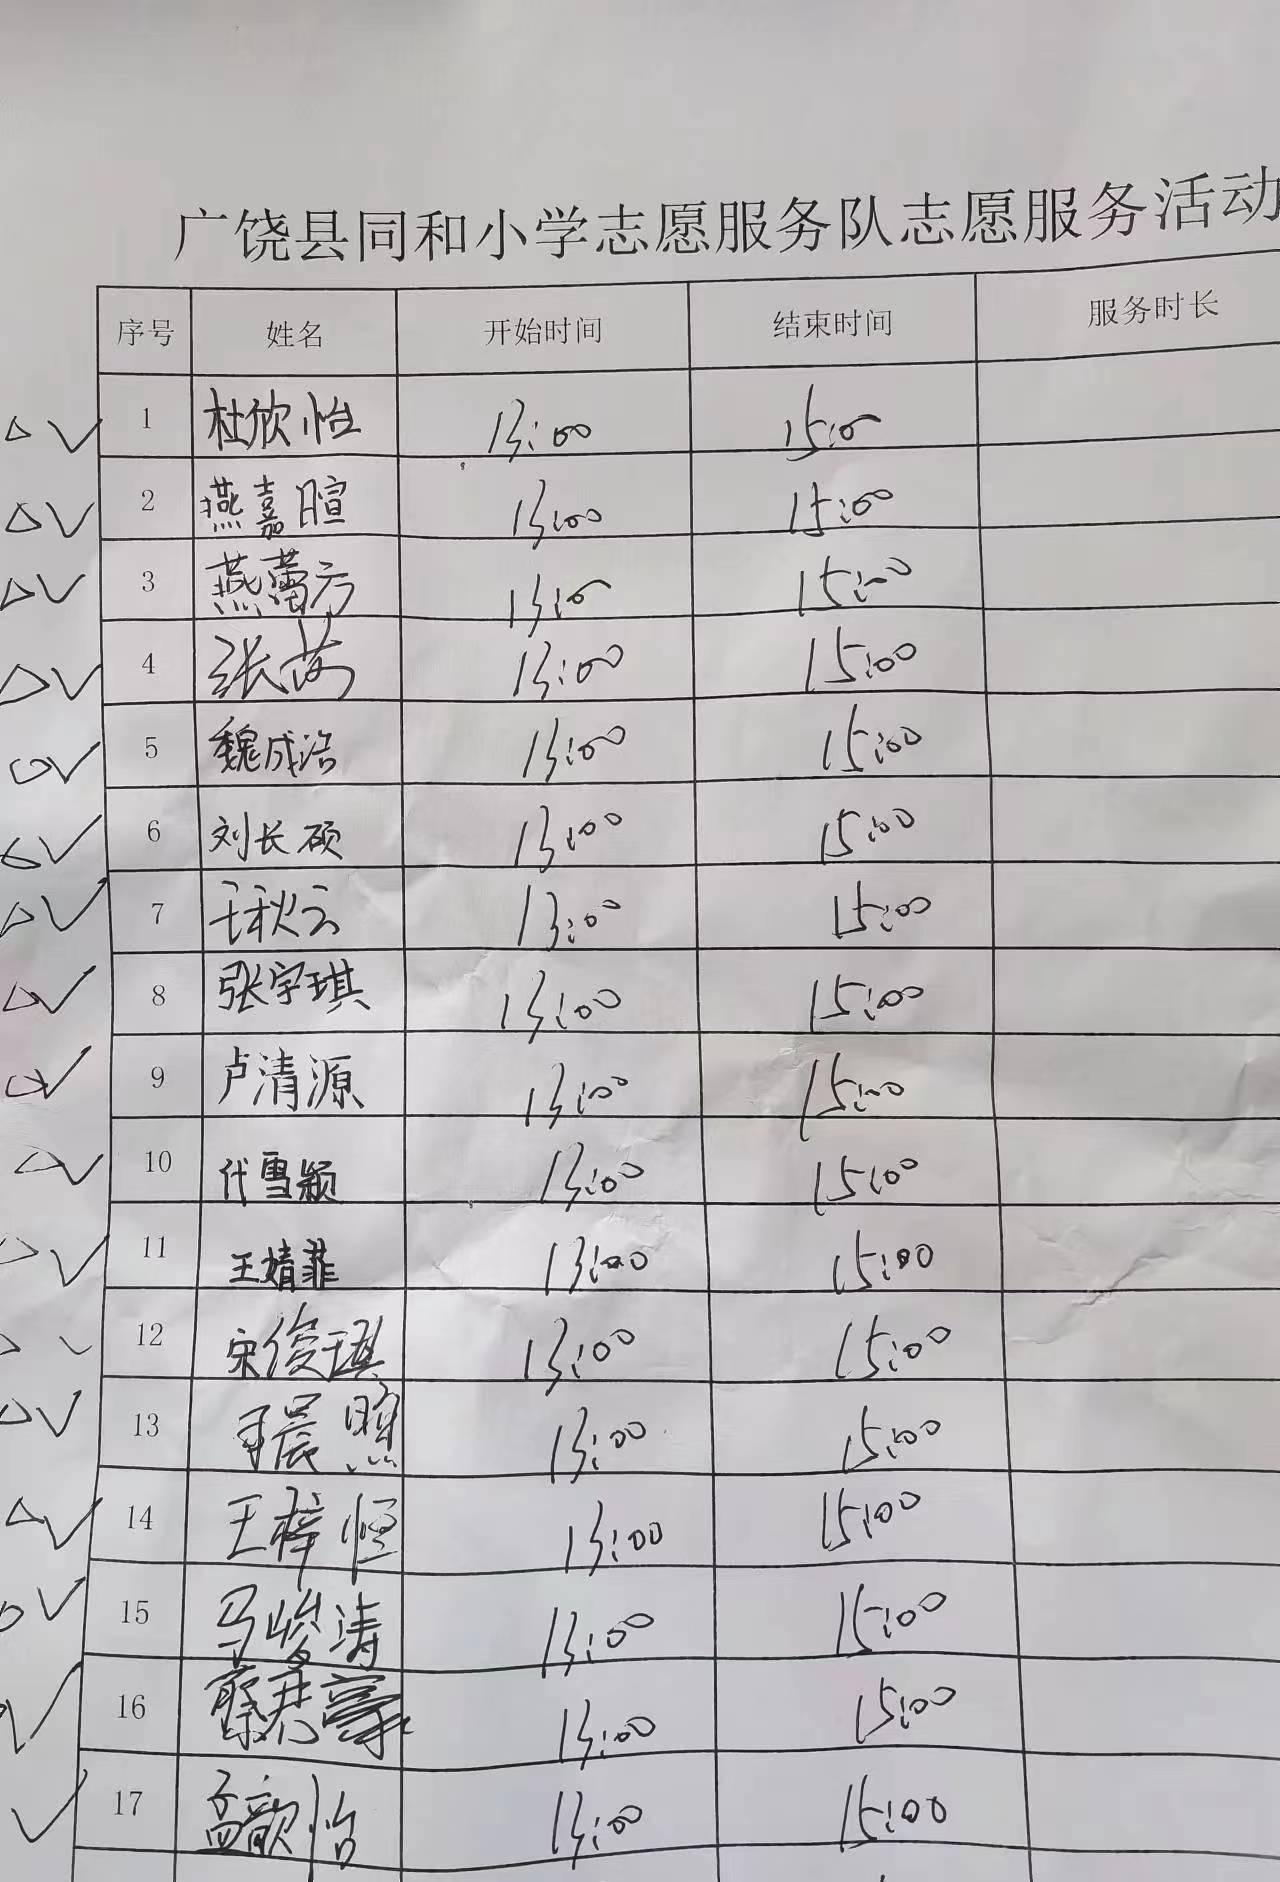 广饶县同和小学志愿服务队志愿服务活动
序号 姓名 开始时间 结束时间 服务时长
1 杜欣怡 13:00 15:00
2 燕嘉暄 13:00 15:00
3 燕 13:00 15:00
4 张 13:00 15:00
5 魏成浩 13:00 15:00
6 刘长硕 13:00 15:00
7 王秋云 13:00 15:00
8 张宇琪 13:00 15:00
9 卢清源 13:00 15:00
10 代雪颖 13:00 15:00
11 王婧菲 13:00 15:00
12 宋俊琪 13:00 15:00
13 晨 13:00 15:00
14 王梓恒 13:00 15:00
15 马峻涛 13:00 15:00
16 綦君豪 13:00 15:00
17 孟歆怡 13:00 15:00